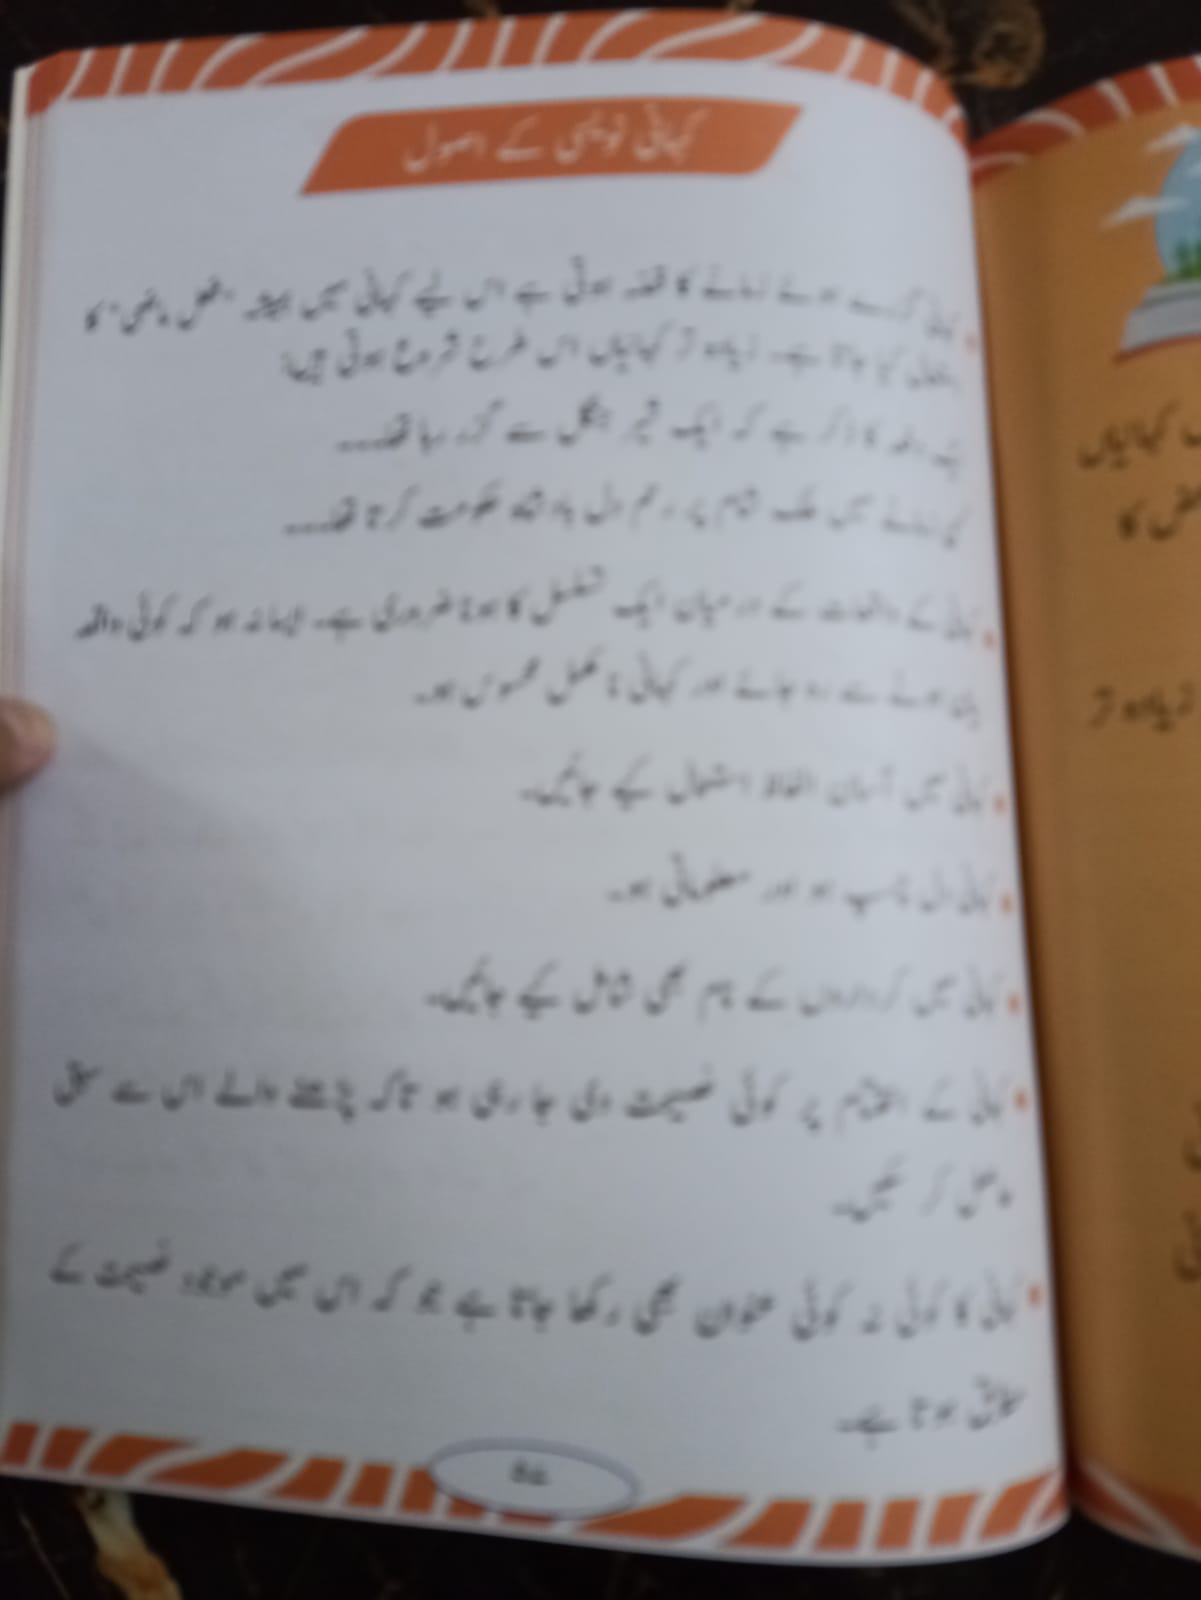 کہانی نویسی کے اصول
کہانی گزرے ہوئے زمانے کا قصّہ ہوتی ہے اس لیے کہانی میں ہمیشہ "فعل ماضی" کا
استعمال کیا جاتا ہے۔ زیادہ تر کہانیاں اس طرح شروع ہوتی ہیں:
ایک دفعہ کا ذکر ہے کہ ایک شیر جنگل سے گزر رہا تھا۔۔۔۔
کسی زمانے میں ملک شام پر رحم دل بادشاہ حکومت کرتا تھا۔۔۔۔
کہانی کے واقعات کے درمیان ایک تسلسل کا ہونا ضروری ہے۔ ایسا نہ ہو کہ کوئی واقعہ
بیان ہونے سے رہ جائے اور کہانی نا مکمل محسوس ہو۔
کہانی میں آسان الفاظ استعمال کیے جائیں۔
کہانی دل چسپ ہو اور معلوماتی ہو۔
کہانی میں کرداروں کے نام بھی شامل کیے جائیں۔
کہانی کے اختتام پر کوئی نصیحت دی جا رہی ہو تاکہ پڑھنے والے اس سے سبق
حاصل کر سکیں۔
کہانی کا کوئی نہ کوئی عنوان بھی رکھا جاتا ہے جو کہ اس میں موجود نصیحت کے
مطابق ہوتا ہے۔
کہانیاں
کا
زیادہ تر